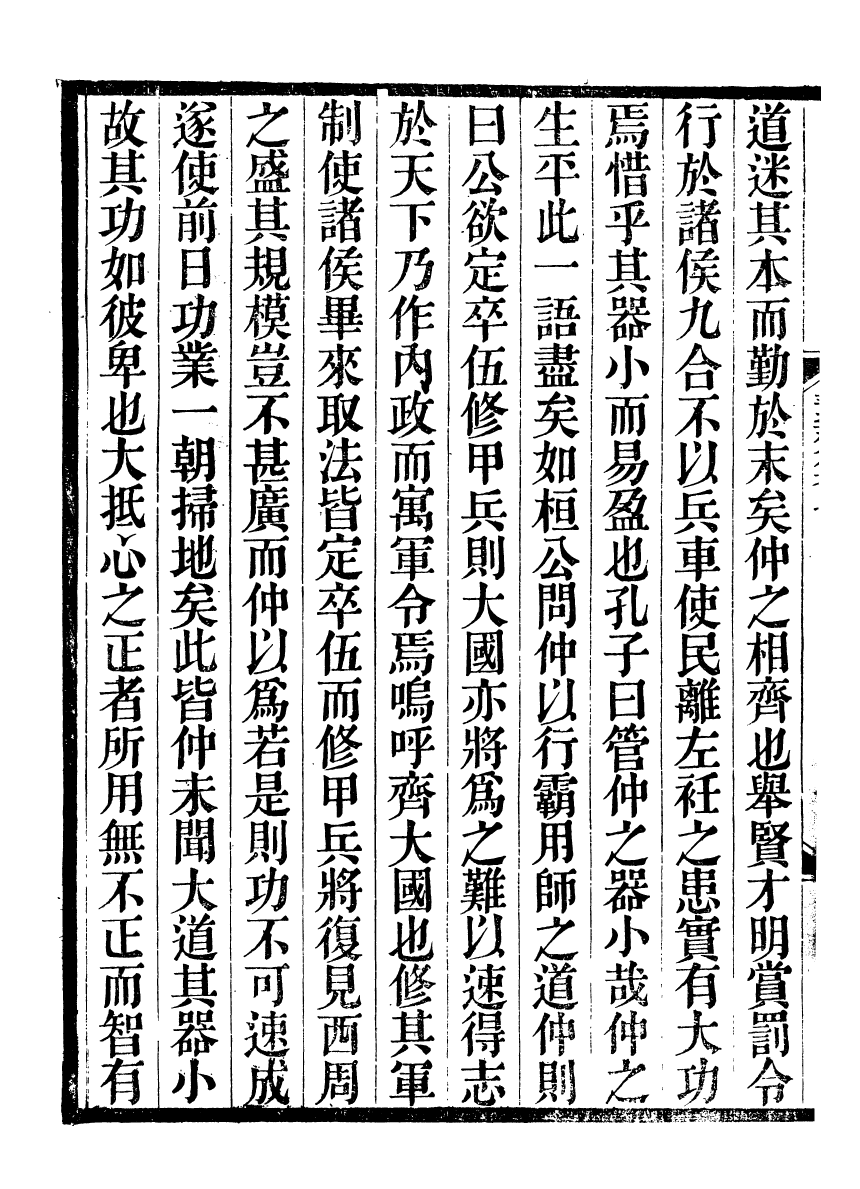 道迷其本而勤於末矣仲之相齊也舉賢才明賞罰令
行於諸侯九合不以兵車使民離左衽之患實有大功
焉惜乎其器小而易盈也孔子曰管仲之器小哉仲之
生平此一語盡矣如桓公問仲以行霸用師之道仲則
曰公欲定卒伍修甲兵則大國亦將爲之難以速得志
於天下乃作內政而寓軍令焉嗚呼齊大國也修其軍
制使諸侯畢來取法皆定卒伍而修甲兵將復見西周
之盛其規模豈不甚廣而仲以爲若是則功不可速成
遂使前日功業一朝掃地矣此皆仲未聞大道其器小
故其功如彼卑也大抵心之正者所用無不正而智有